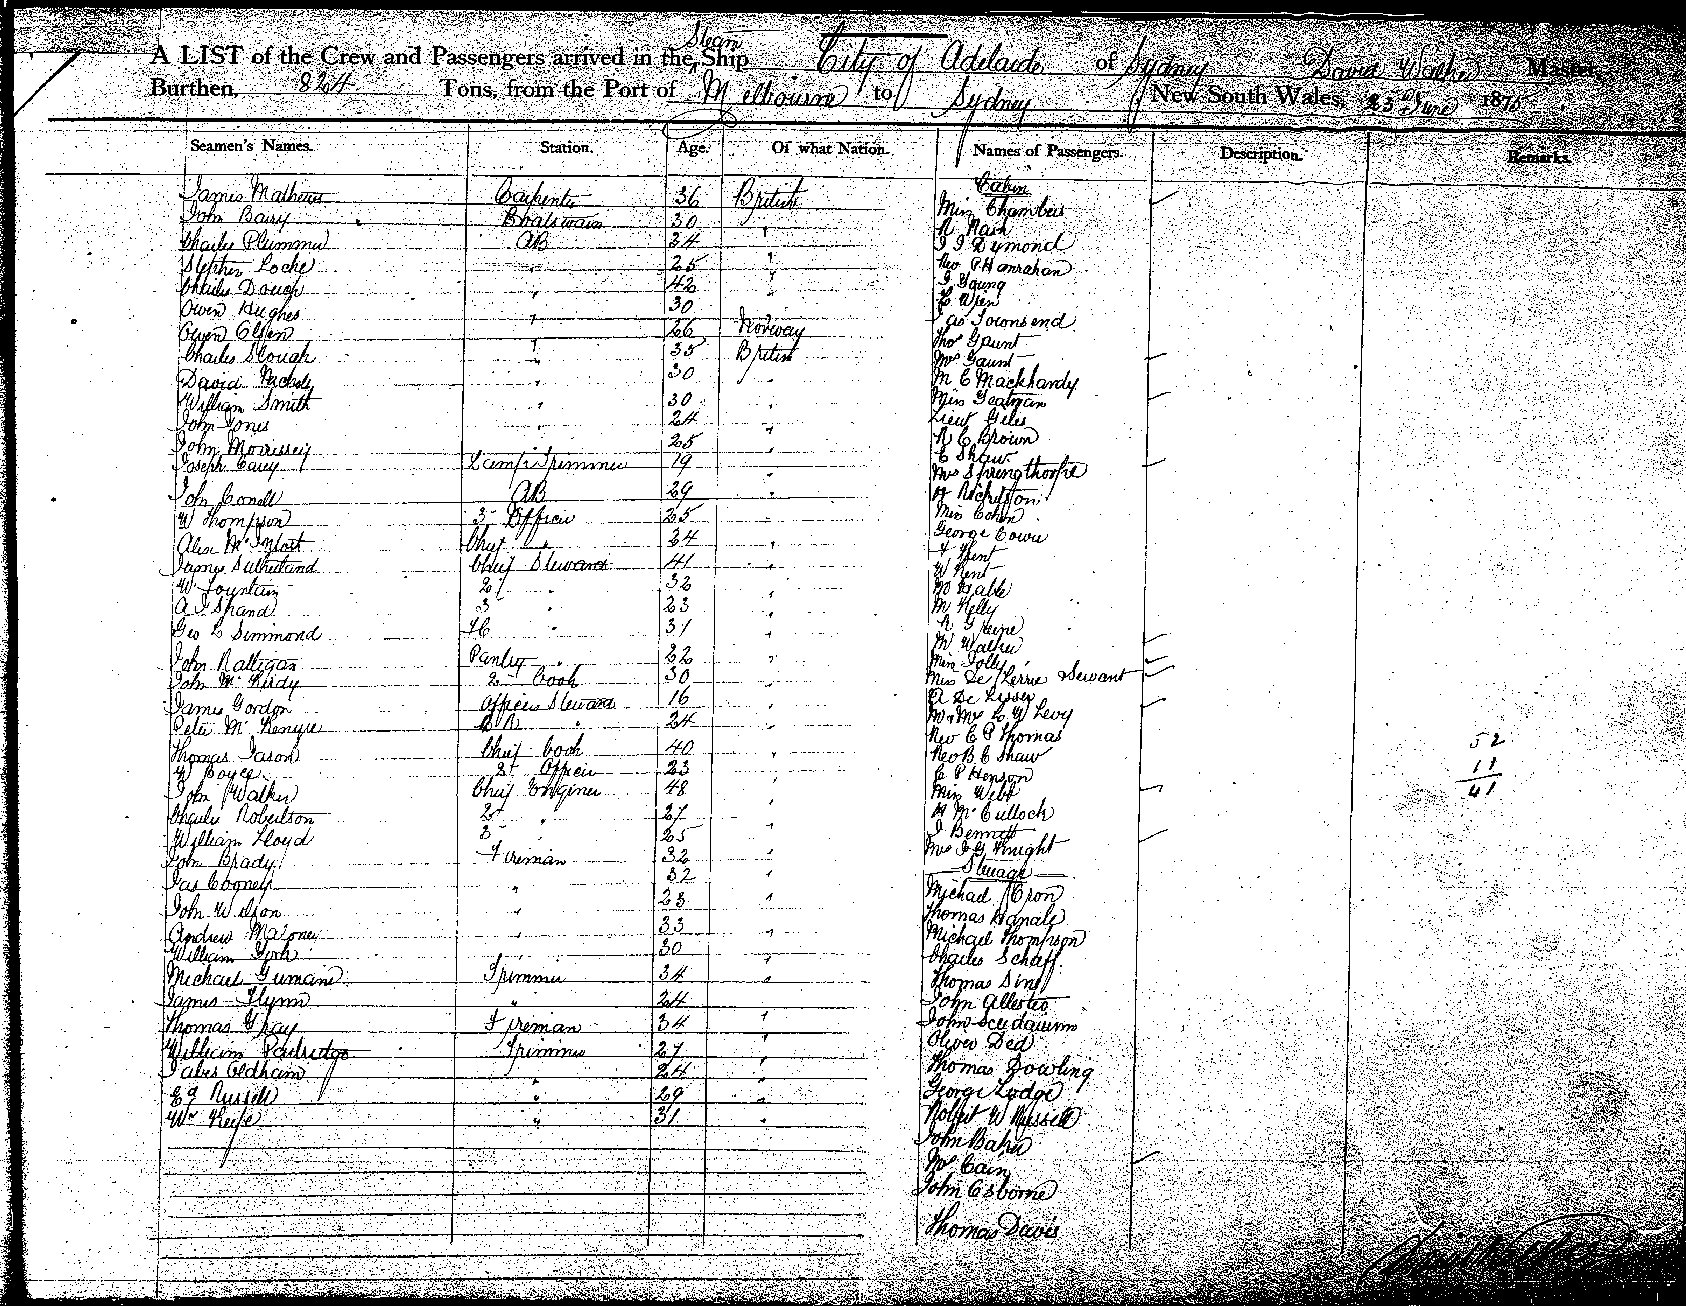 A LIST of the Crew and Passengers arrived in the Steam Ship City of Adelaide of Sydney David Walker Master,
Burthen, 824 Tons, from the Port of Melbourne to Sydney New South Wales, 23 June 187
Seamen's Names. Station. Age. Of what Nation. Names of Passengers. Description. Remarks.
James Mathews Carpenter 36 British
John Barry Boatswain 30 "
Charles Plummer AB 24
Stephen Locke " 25 "
Charles Douch " 42 "
Owen Hughes 30
Owen Olsen " 26 Norway
Charles Slough " 35 British
David " 30 "
William Smith " 30 "
John Jones " 24
John Morrissey 25 "
Joseph Carey Lamp Trimmer 19
John AB 29 "
W Thompson 3 Officer 25 "
Alex Chief " 34 "
James Sutherland Chief Steward 41 "
W Fountain 2 " 32 "
A J Shand 3 " 23 "
Geo L Simmond " 31 "
John Rattigan Pantry " 22 "
John McKirdy 2 Cook 30
James Gordon Officers Steward 16 "
Peter McKenzie " 24 "
Thomas Jason Chief Cook 40 "
W Boyce 2 Officer 23 "
John Walker Chief Enginer 48 "
Charles Robertson 2 " 27 "
William Lloyd 3 25 "
John Brady Fireman 32 "
Jas Cooney 32 "
John Wilson " 23 "
Andrew Maloney " 33 "
William 30
Michael Trimmer 34 "
James Flynn " 24
Thomas Gray Fireman 34 "
William Partridge Trimmer 27 "
James Oldham 24 "
E J Russell " 29 "
Wm Keefe " 31 "
Cabin
Miss Chambers
R Nash
J J Dymond
Rev P Hanrahan
J Young
C Wren
Jas Townsend
Thos Gaunt
Mrs Gaunt
M C Mackhardy
Miss Yeatman
Lieut Giles
R C Brown
E Shaw
Mrs Springthorpe
Miss Cohen
George Cowie
F Kent
W Kent
M Kelly
M Walker
Miss Jolly
Miss De Servant
A De Lisser
Mr & Mrs L W Levy
Rev C P Thomas
Rev B C Shaw
C P Henson
Miss Webb
McCulloch
J Bennett
Mrs J G Knight
Steerage
Michael Cron
Thomas
Michael Thompson
Charles Schaff
Thomas
John
John
Oliver Ded
Thomas Dowling
George Lodge
Robert W Russell
John Baker
Mrs Cain
John Osborne
Thomas Davis
52
11
41